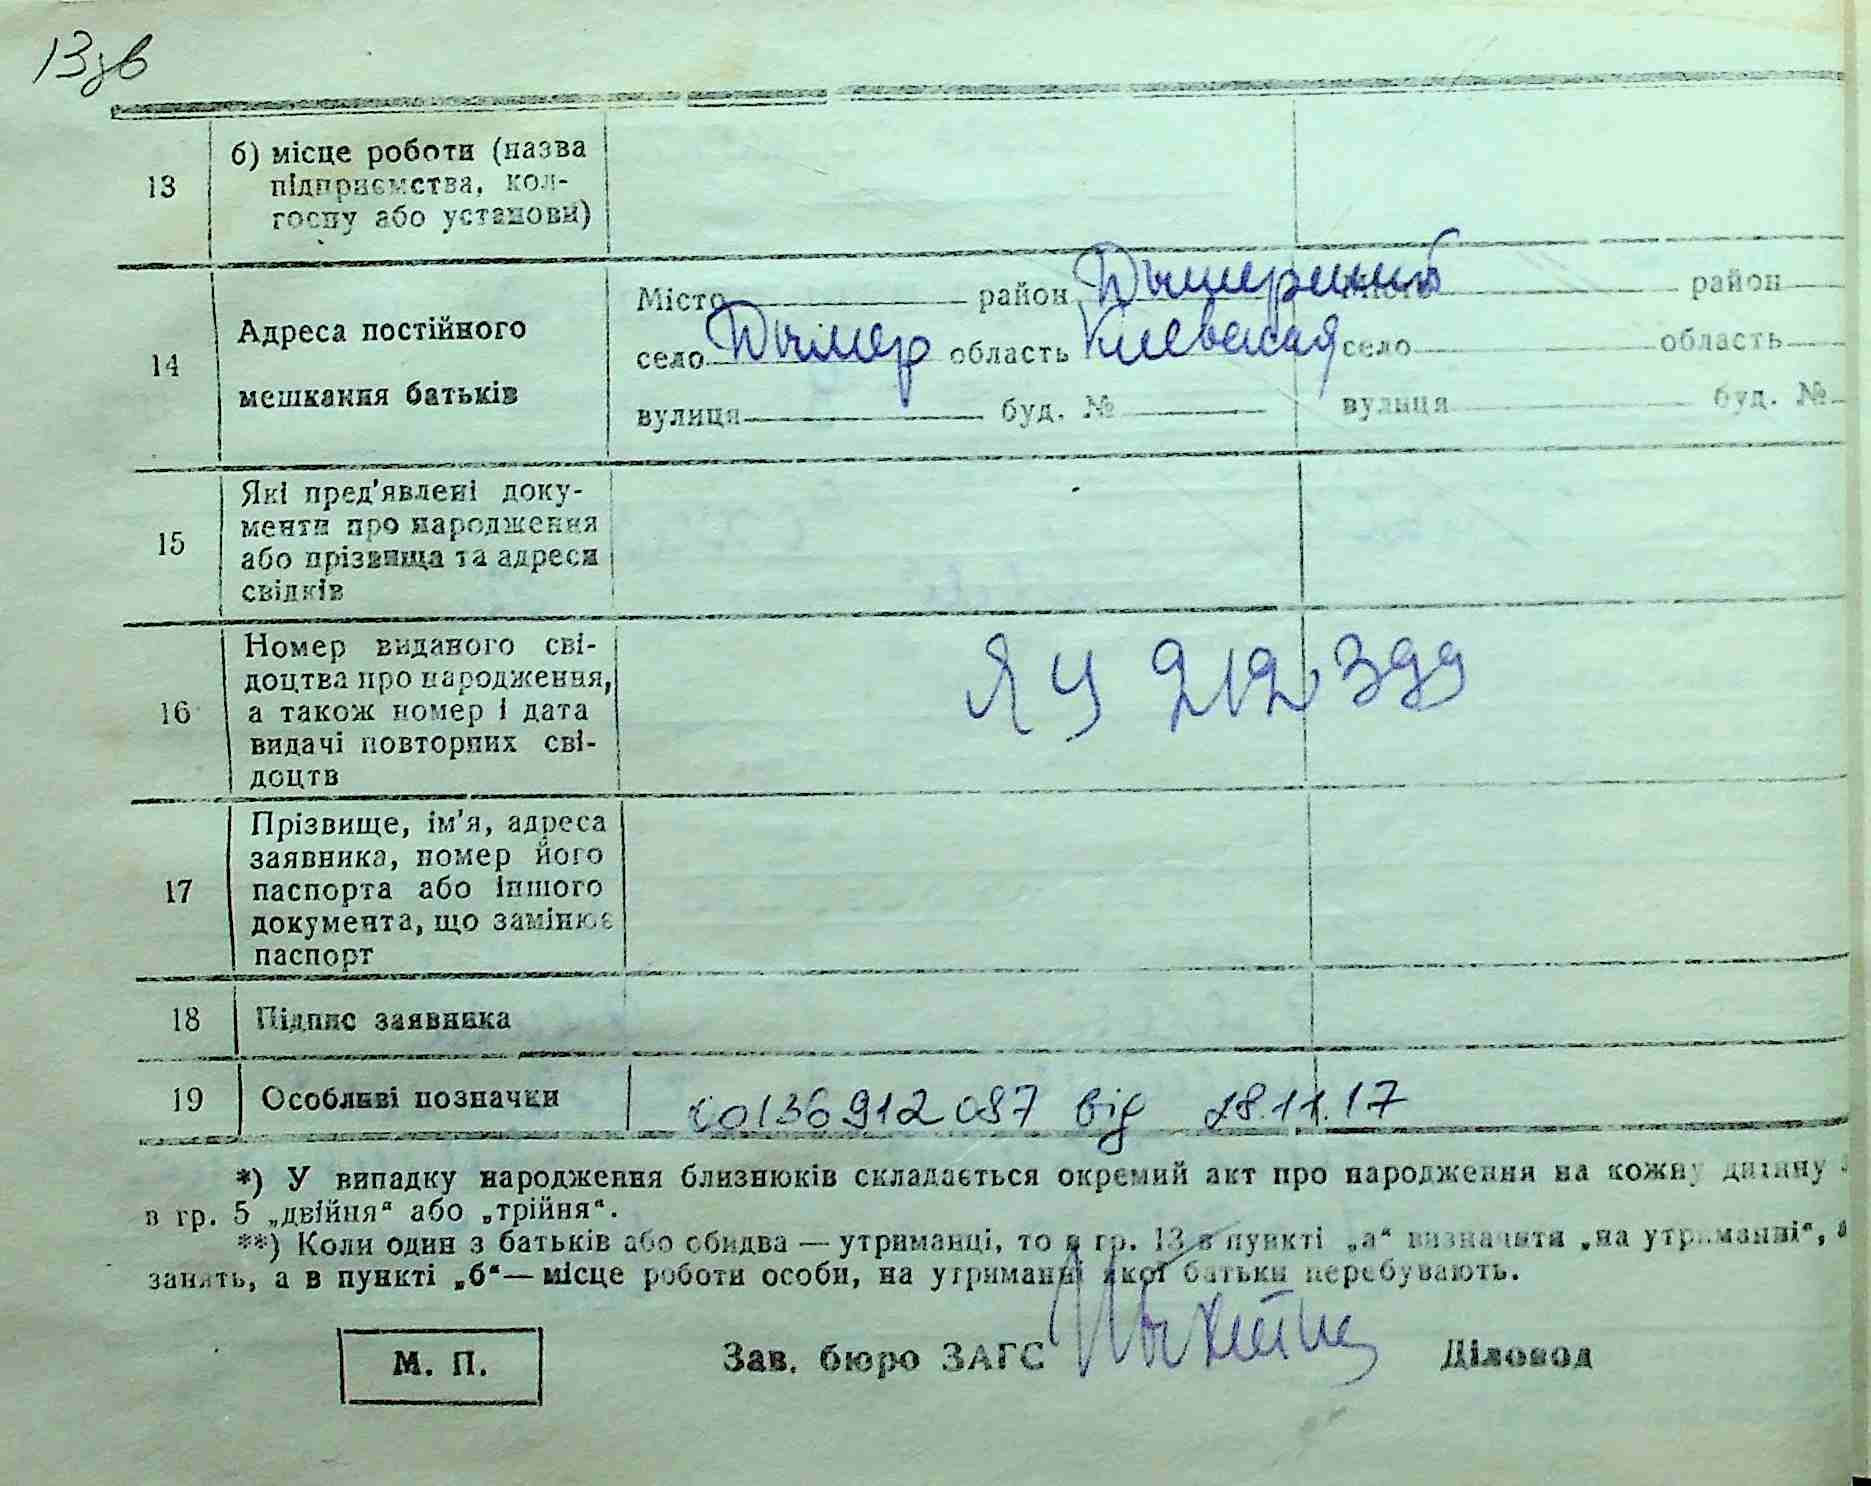 13зв
13 б) місце роботи (назва
підприємства, кол-
госпу або установи)
14 Адреса постійного
мешкання батьків
Місто район Дымерский місто район
село Дымер область Киевская село область
вулиця буд. № вулиця буд. №
15 Які пред'явлені доку-
менти про народження
або прізвища та адреси
свідків
16 Номер виданого сві-
доцтва про народження,
а також номер і дата
видачі повторних сві-
доцтв
ЯУ 212399
17 Прізвище, ім'я, адреса
заявника, номер його
паспорта або іншого
документа, що замінює
паспорт
18 Підпис заявника
19 Особливі позначки 00136912087 від 28.11.17
*) У випадку народження близнюків складається окремий акт про народження на кожну дитину
в гр. 5 „двійня“ або „трійня“.
**) Коли один з батьків або обидва — утриманці, то в гр. 13 в пункті „а“ визначати „на утриманні“,
занять, а в пункті „б“ — місце роботи особи, на утриманні якої батьки перебувають.
М. П. Зав. бюро ЗАГС Діловод